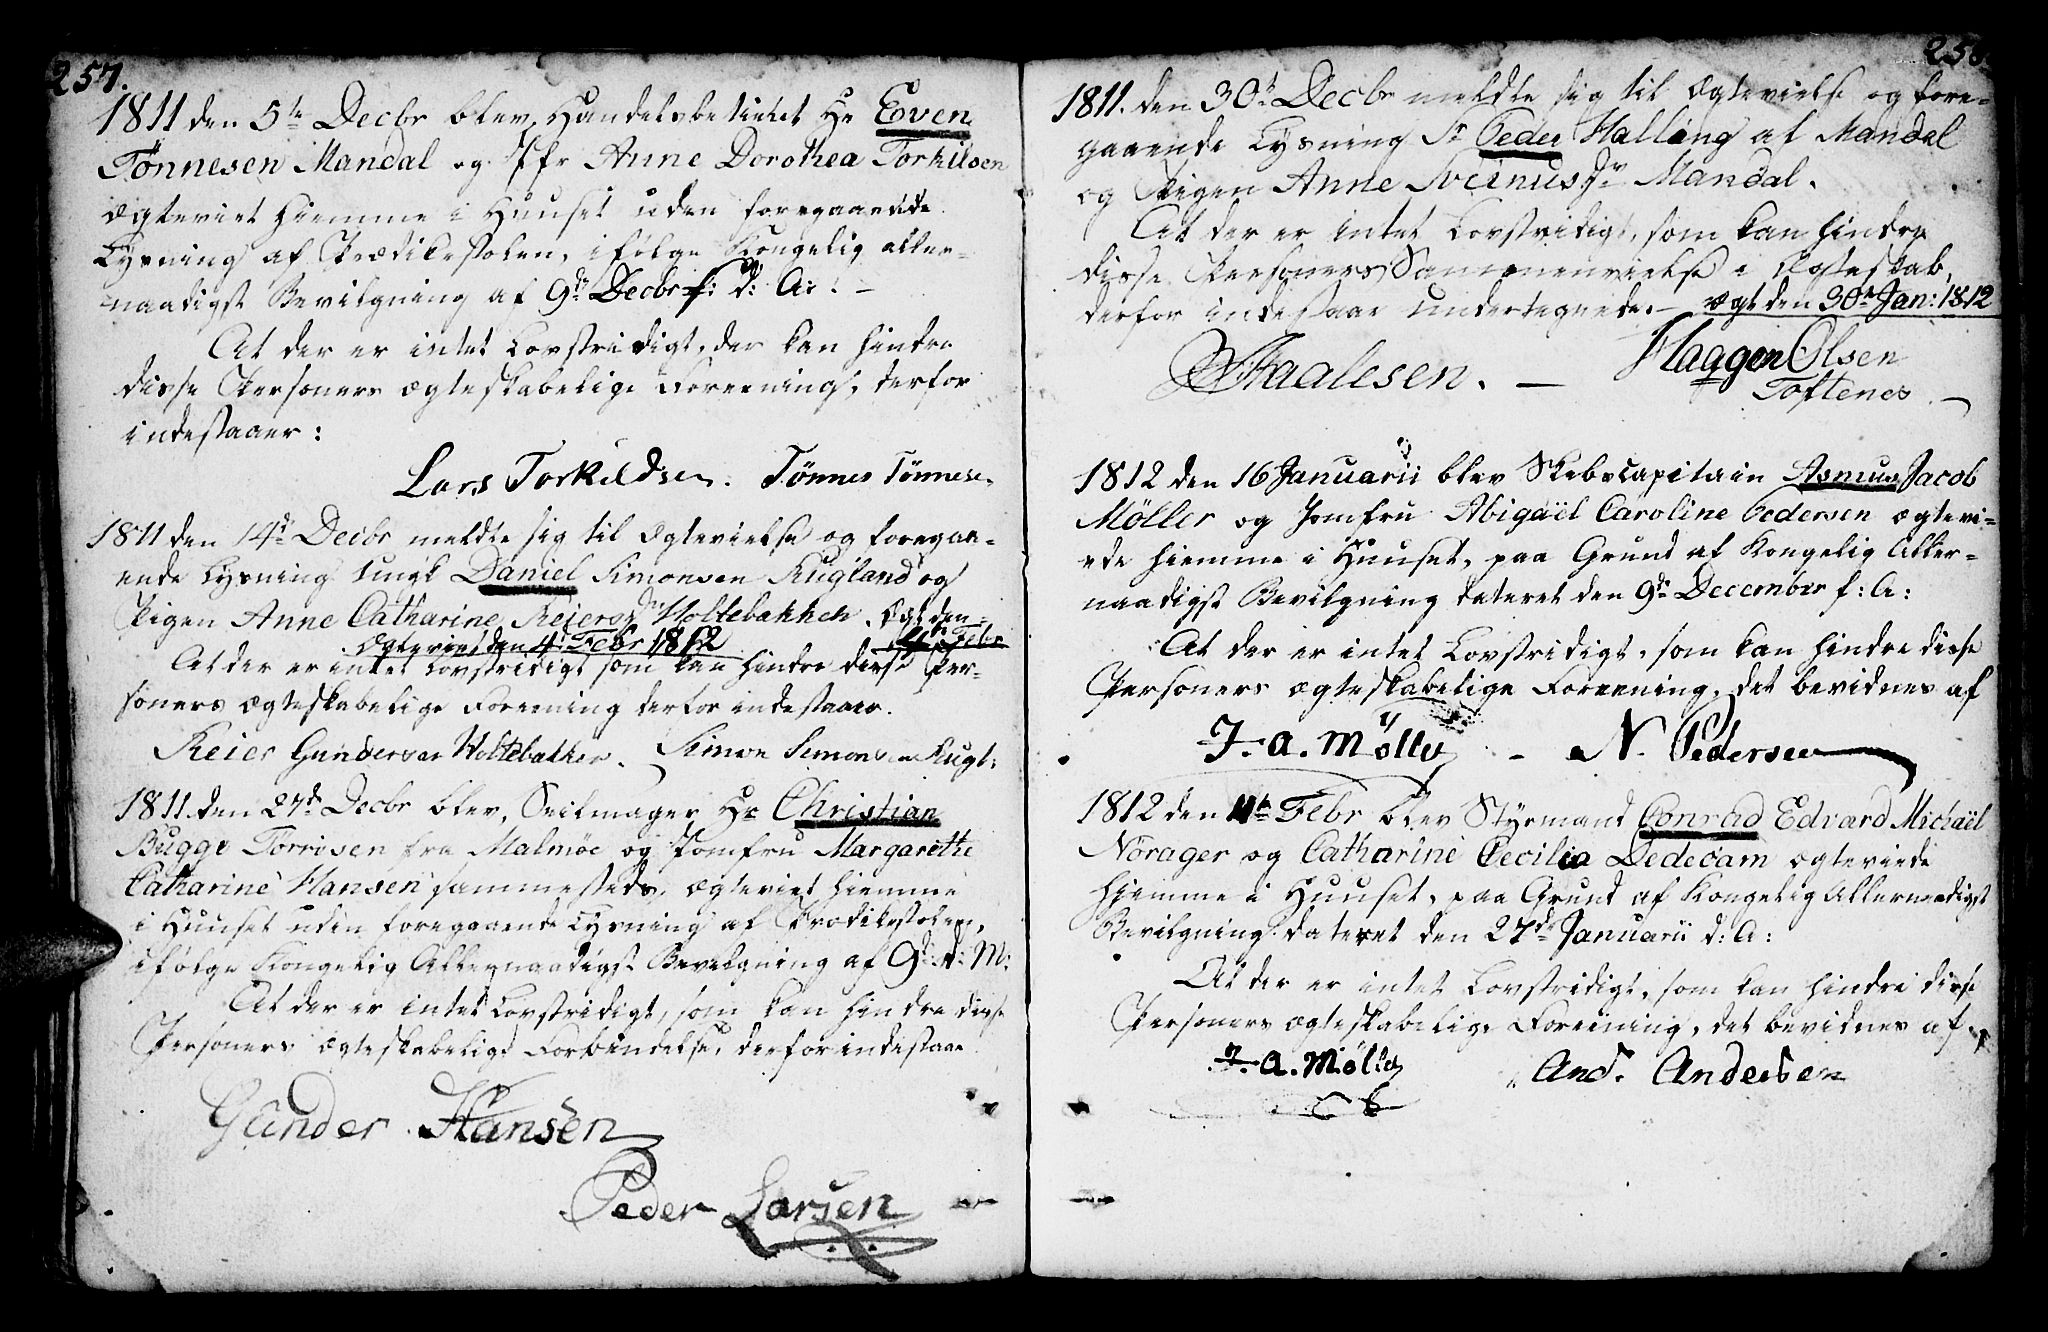 257.
1811 den 5te Decbr blev Handelsbetient Hr Even
Tönnesen Mandal og Jfr Anne Dorothea Torkilsen
ægteviet hiemme i Huuset uden foregaaende
Lysning af Prædikestolen, ifølge Kongelig aller-
naadigst Bevilgning af 9de Decbr f: d: A: . —
At der er intet Lovstridigt, der kan hindre
disse Personers ægteskabelige Foreening, derfor
indestaaer:
Lars Torkildsen. Tönnes Tönnesen.
1811 den 14de Decbr meldte sig til Ægtevielse og foregaa-
ende Lysning Ungk Daniel Simonsen Kugland og
Pigen Anne Catharine Reiersdr Holtebakken. Ægt den
4de Febr
Ægteviet den 4de Febr 1812
At der er intet Lovstridigt som kan hindre disse Per-
soners ægteskabelige Foreening derfor indestaaer.
Reier Gundersen Holtebakken. Simon Simonsen Kugl:
1811 den 27de Decbr blev, Seilmager Hr Christian
Bugge Törrisen fra Malmöe og Jomfru Margarethe
Catharine Hansen sammesteds, ægteviet hiemme
i Huuset uden foregaaende Lysning af Prædikestolen,
ifølge Kongelig Allernaadigst Bevilgning af 9de d: M:
At der er intet Lovstridigt, som kan hindre disse
Personers ægteskabelige Forbindelse, derfor indestaae
Gunder Hansen
Peder Larsen
258.
1811. den 30te Decbr meldte sig til Ægtevielse og fore-
gaaende Lysning Sr Peder Halling af Mandal
og Pigen Anne Sveinusdr Mandal.
At der er intet Lovstridigt, som kan hindre
disse Personers Sammenvielse i Ægteskab,
derfor indestaae Undertegnede. — Ægt den 30te Jan: 1812
Haalesen. — Haagen Olsen
Toftenes —
1812 den 16 Januarii blev Skibscapitain Asmus Jacob
Möller og Jomfru Abigaël Caroline Pedersen ægtevi-
ede hiemme i Huuset, paa Grund af Kongelig Aller-
naadigst Bevilgning dateret den 9de December f: A:
At der er intet Lovstridigt, som kan hindre disse
Personers ægteskabelige Foreening, det bevidnes af
J. A. Möller - N. Pedersen
1812 den 4te Febr blev Styrmand Conrad Edvard Michaël
Norager og Catharine Cecilia Dedecam ægteviede
hiemme i Huuset, paa Grund af Kongelig Allernaadigst
Bevilgning dateret den 27de Januarii d: A:
At der er intet Lovstridigt, som kan hindre disse
Personers ægteskabelige Foreening, det bevidnes af
J. A. Möller And. Andersen